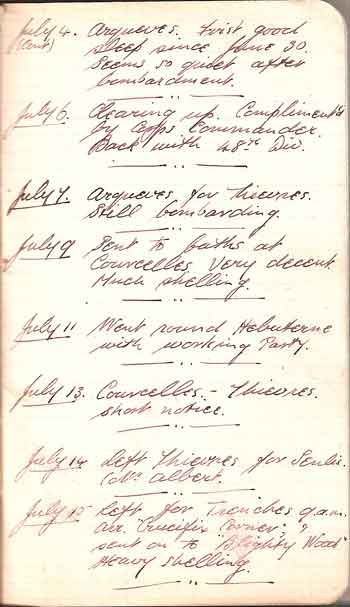 July 4. Arqueves. First good
(Cont) sleep since June 30.
Seems so quiet after
bombardment.
July 6. Clearing up. Compliment'd
by Corps Commander.
Back with 48th Div.
July 7. Arqueves for Thievres.
Still bombarding.
July 9 Sent to baths at
Courcelles. Very decent.
Much shelling.
July 11 Went round Hebuterne
with working Party.
July 13. Courcelles - Thievres.
short notice.
July 14 Left Thievres for Senlis.
Nr. Albert.
July 15 Left for Trenches 9 a.m.
Arr. "Crucifix Corner" &
sent on to "Blighty Wood"
Heavy shelling.